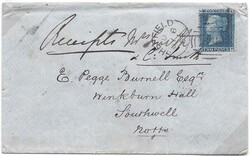 Receipts Mrs
& C. Smith
E. Pegge Burnell Esqr
Winkburn Hall
Southwell
Notts